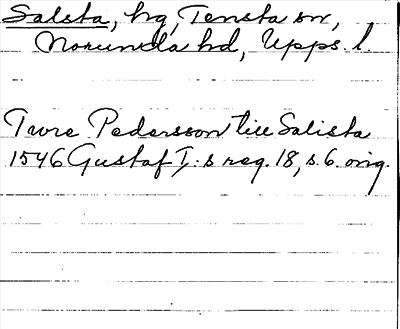 Salsta, hg, Tensta sn,
Norunda hd, Upps. l.
Ture Pedersson till Salista
1546 Gustaf I:s reg. 18, s. 6. orig.